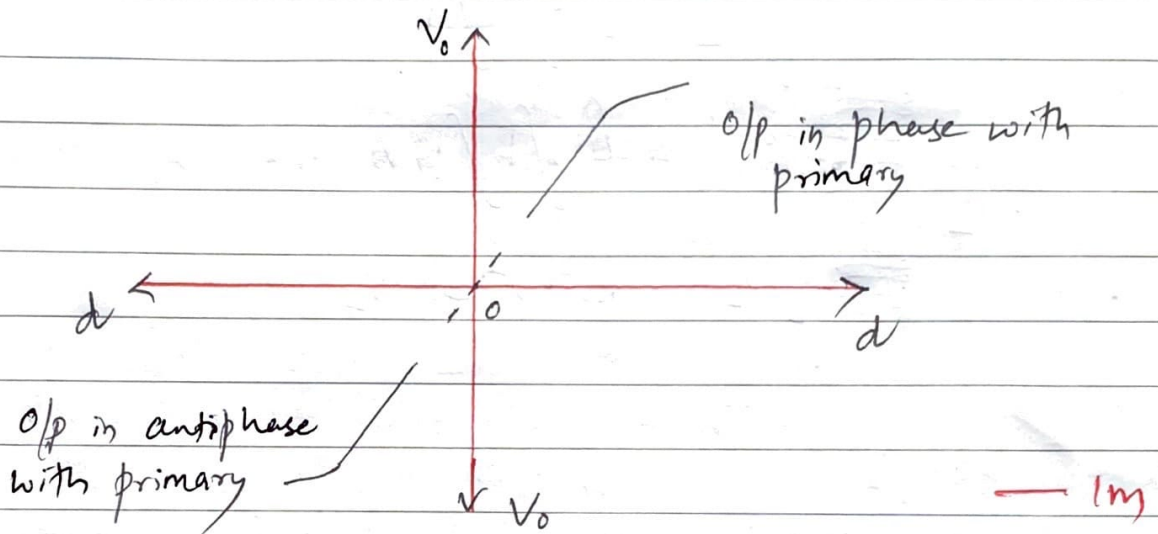 V₀
O/p in phase with
primary
0
d
d
O/p in antiphase
with primary
V₀
— 1m